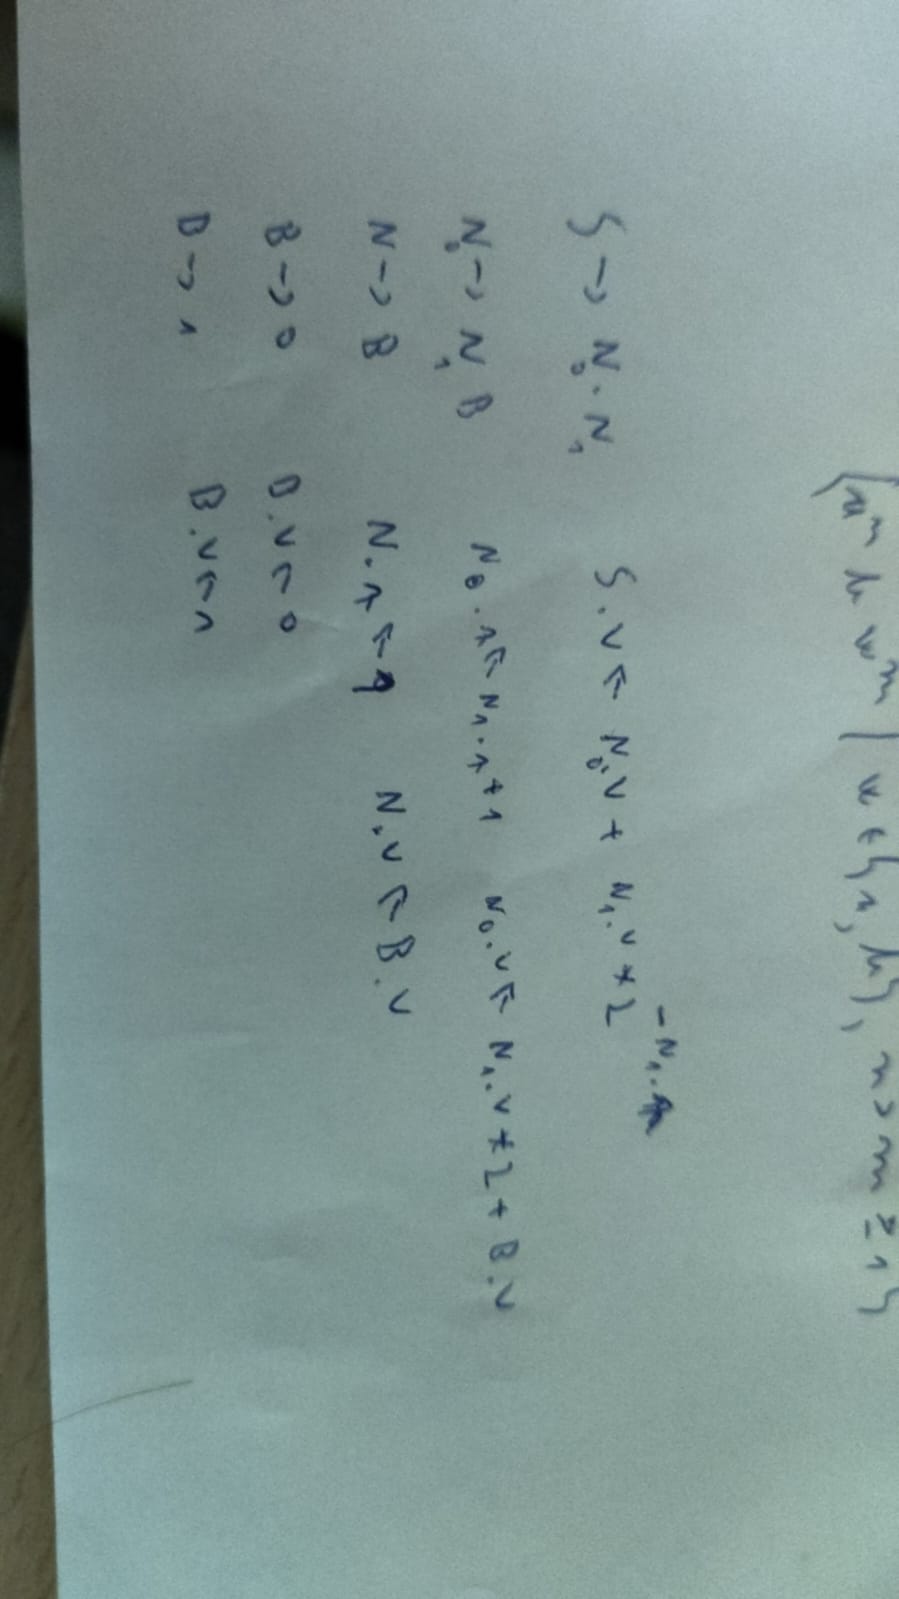 {a^n b w^m | w ∈ {a, b}, n > m ≥ 1}
S → N₀ . N₁ S.v ← N₀.v + N₁.v * 2^-N₁.r
N₀ → N₁ B N₀.r ← N₁.r + 1 N₀.v ← N₁.v * 2 + B.v
N → B N.r ← 1 N.v ← B.v
B → 0 B.v ← 0
B → 1 B.v ← 1